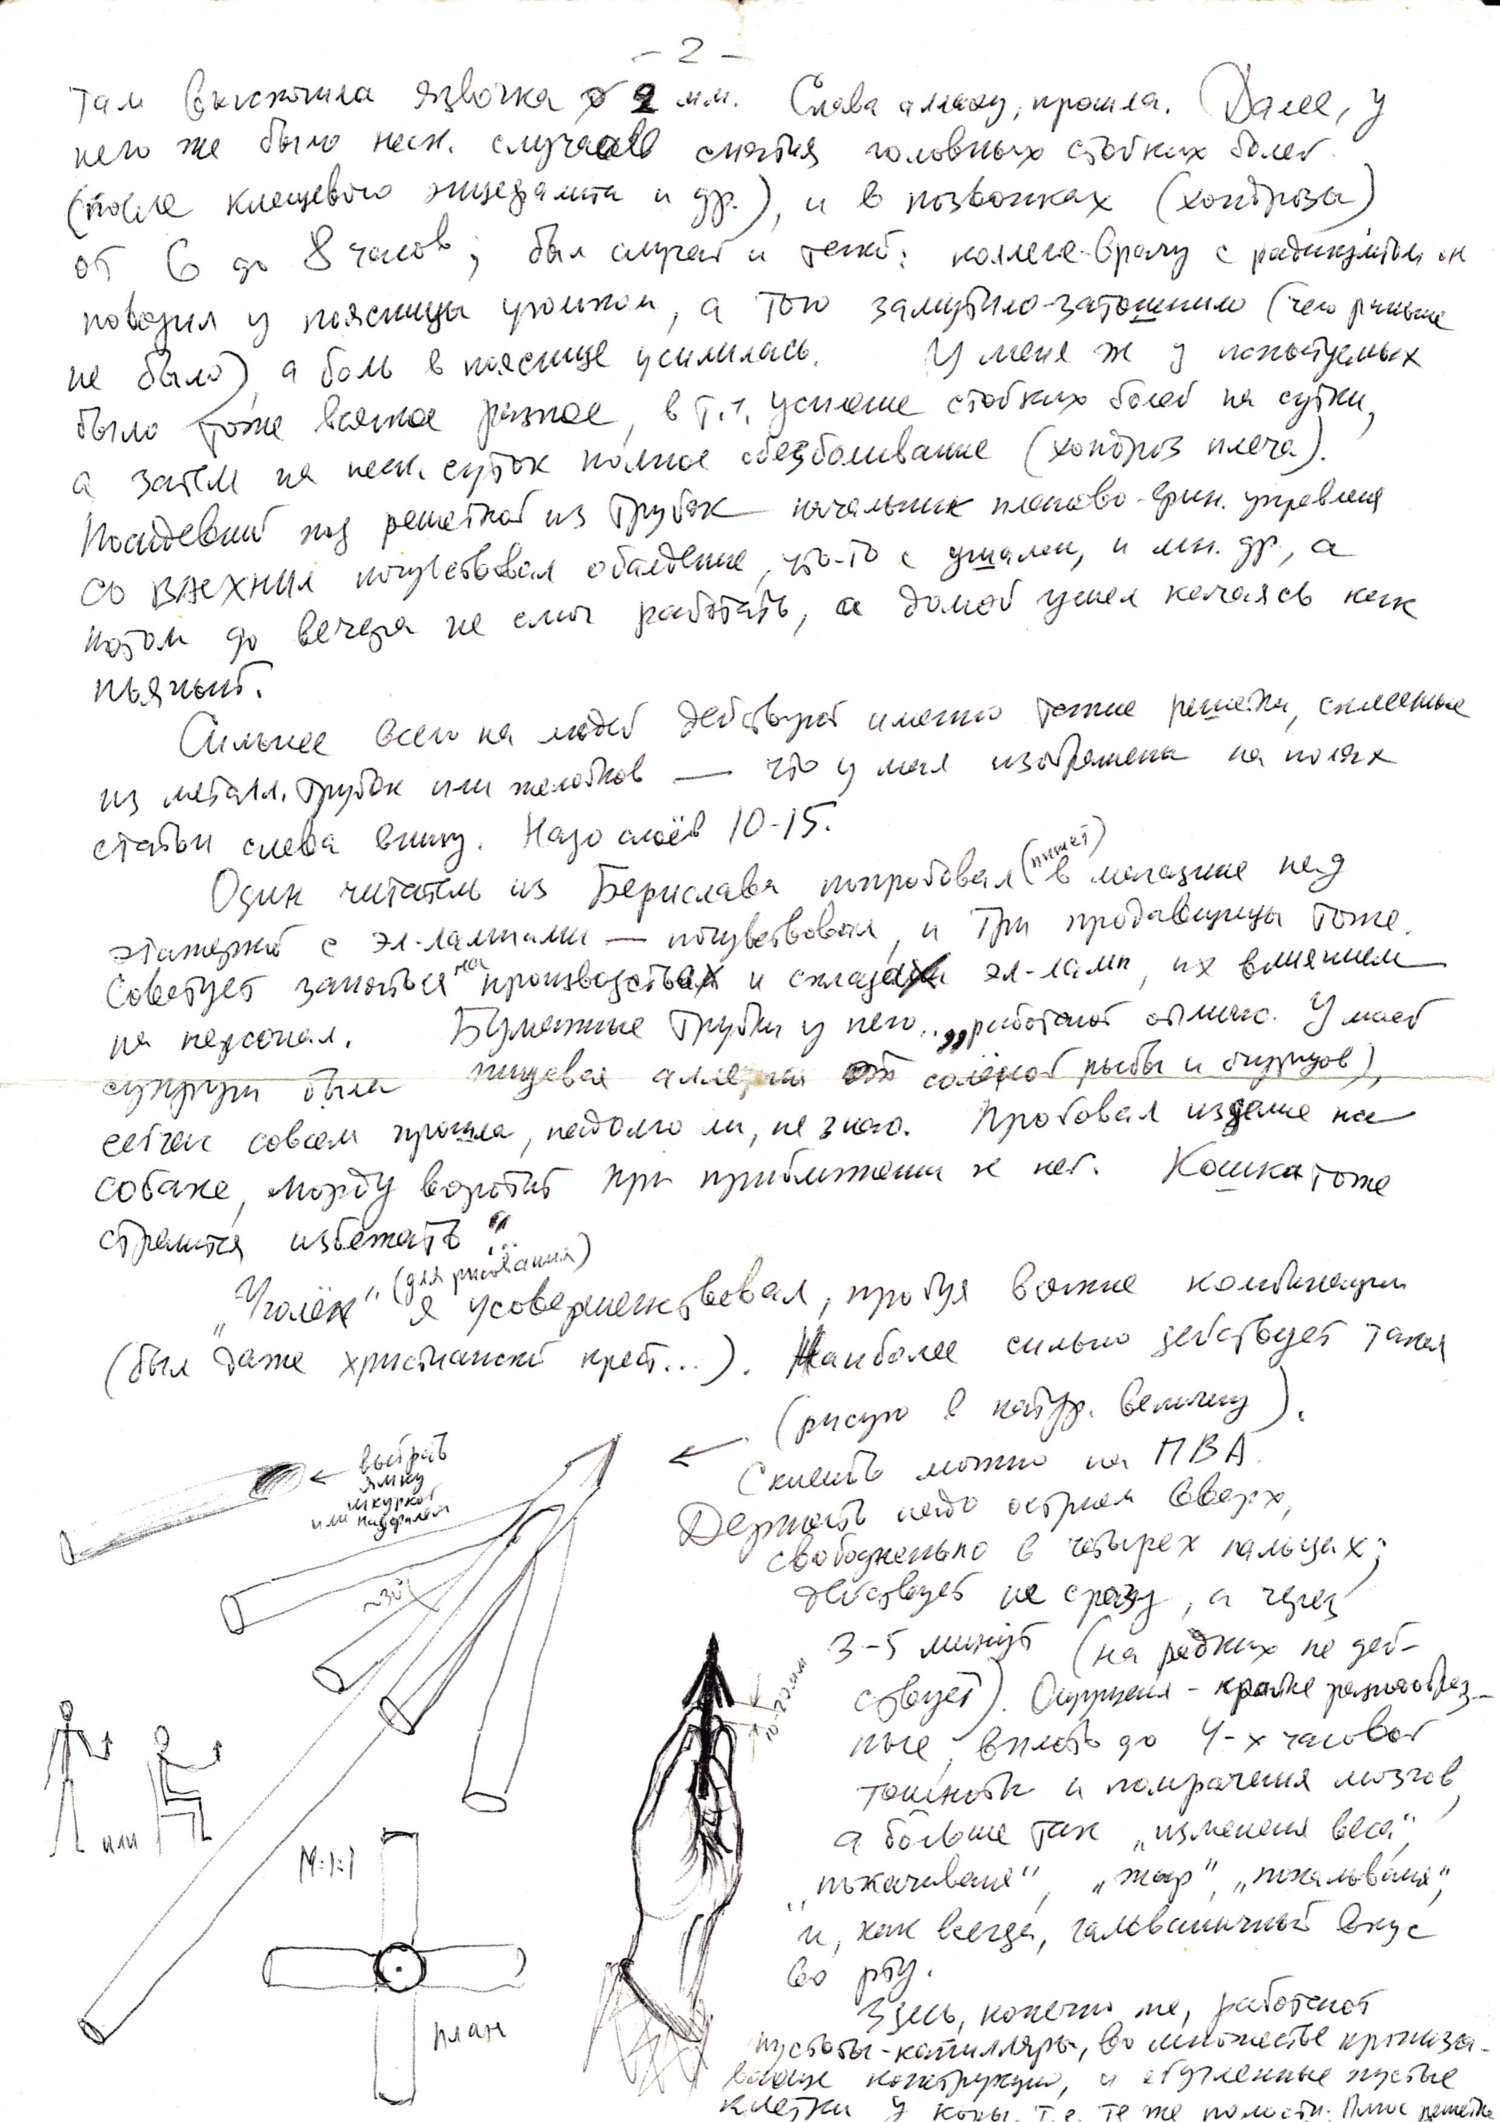 - 2 -
там выскочила язвочка ø 2 мм. Слава аллаху, прошла. Далее, у
него же было неск. случаев снятия головных стойких болей
(после клещевого энцефалита и др.), и в позвонках (хондрозы)
от 6 до 8 часов; был случай и такой: коллеге-врачу с радикулитом он
поводил у поясницы угольком, а того замутило-затошнило (чего раньше
не было), а боль в пояснице усилилась. У меня ж у испытуемых
было тоже всякое разное, в т.ч. усиление стойких болей на сутки,
а затем на неск. суток полное обезболивание (хондроз плеча).
Посидевший под решеткой из трубок начальник планово-фин. управления
СО ВАСХНИЛ почувствовал обалдение, что-то с ушами, и мн. др., а
потом до вечера не смог работать, а домой ушел качаясь как
пьяный.
Сильнее всего на людей действуют именно такие решетки, склеенные
из металл. трубок или желобков — что у меня изображена на полях
статьи слева внизу. Надо слоёв 10-15.
Один читатель из Берислава попробовал (пишет) в магазине над
этажеркой с эл-лампами — почувствовал, и три продавщицы тоже.
Советует заняться на производствах и складах эл-ламп, их влиянием
на персонал. Бумажные трубки у него... „работают отлично. У моей
супруги была пищевая аллергия от солёной рыбы и огурцов),
сейчас совсем прошла, надолго ли, не знаю. Пробовал изделие на
собаке, морду воротит при приближении к ней. Кошка тоже
стремится избежать"...
„Уголёк" (для рисования) я усовершенствовал, пробуя всякие комбинации
(был даже христианский крест...). Наиболее сильно действует такая
(рисую в натур. величину).
Склеить можно на ПВА.
Держать надо острием вверх,
свободненько в четырех пальцах;
действует не сразу, а через
3-5 минут (на редких не дей-
ствует). Ощущения - крайне разнообраз-
ные, вплоть до 4-х часовой
тошноты и помрачения мозгов,
а больше так „изменения веса",
„покачивания", „жар", „покалывания",
и, как всегда, гальваничный вкус
во рту.
Здесь, конечно же, работают
пустоты-капилляры, во множестве пронизы-
вающие конструкцию, и обугленные пустые
клетки у коры, т.е. те же полости. Плюс решетка
выбрать
ямку
шкуркой
или надфилем
~30°
10-20 мм
или
М 1:1
план